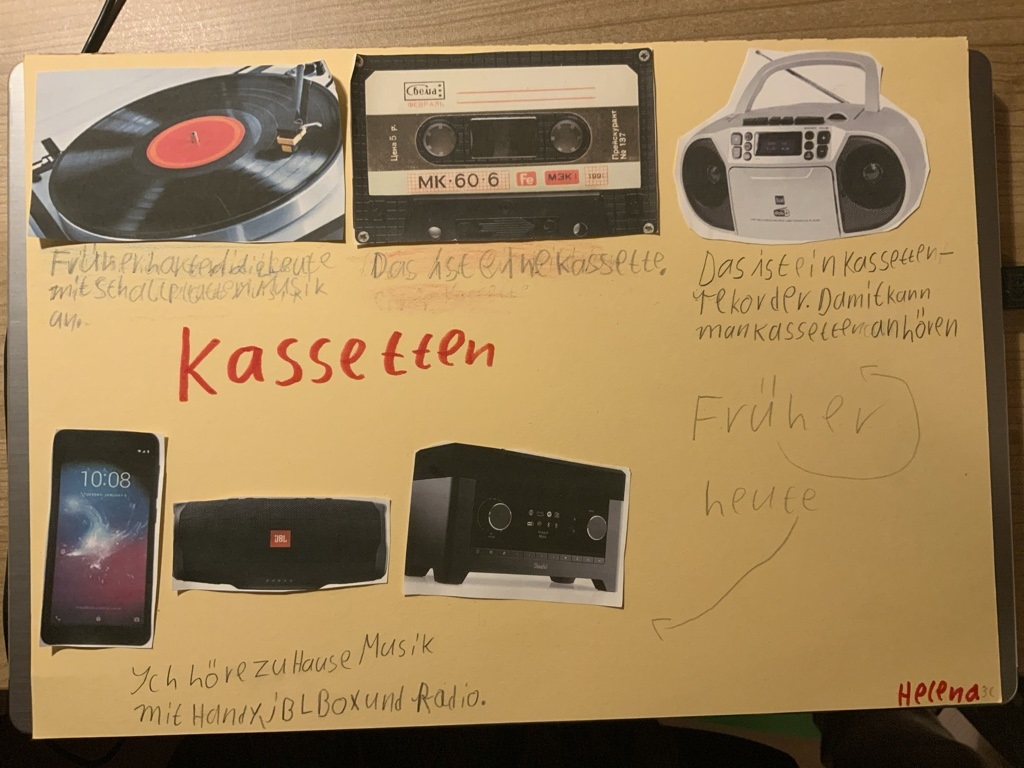 Свема
ФЕВРАЛЬ
Цена 5 р.
Прейскурант
№ 137
МК·60·6 Fe МЭК I 199
Früher hatten die Leute
mit Schallplatten Musik
an.
Das ist eine Kassette.
Das ist ein Kassetten-
rekorder. Damit kann
man Kassetten anhören
Kassetten
Früher
heute
10:08
JBL
Teufel
Ich höre zu Hause Musik
mit Handy, JBL Box und Radio.
Helena 3c